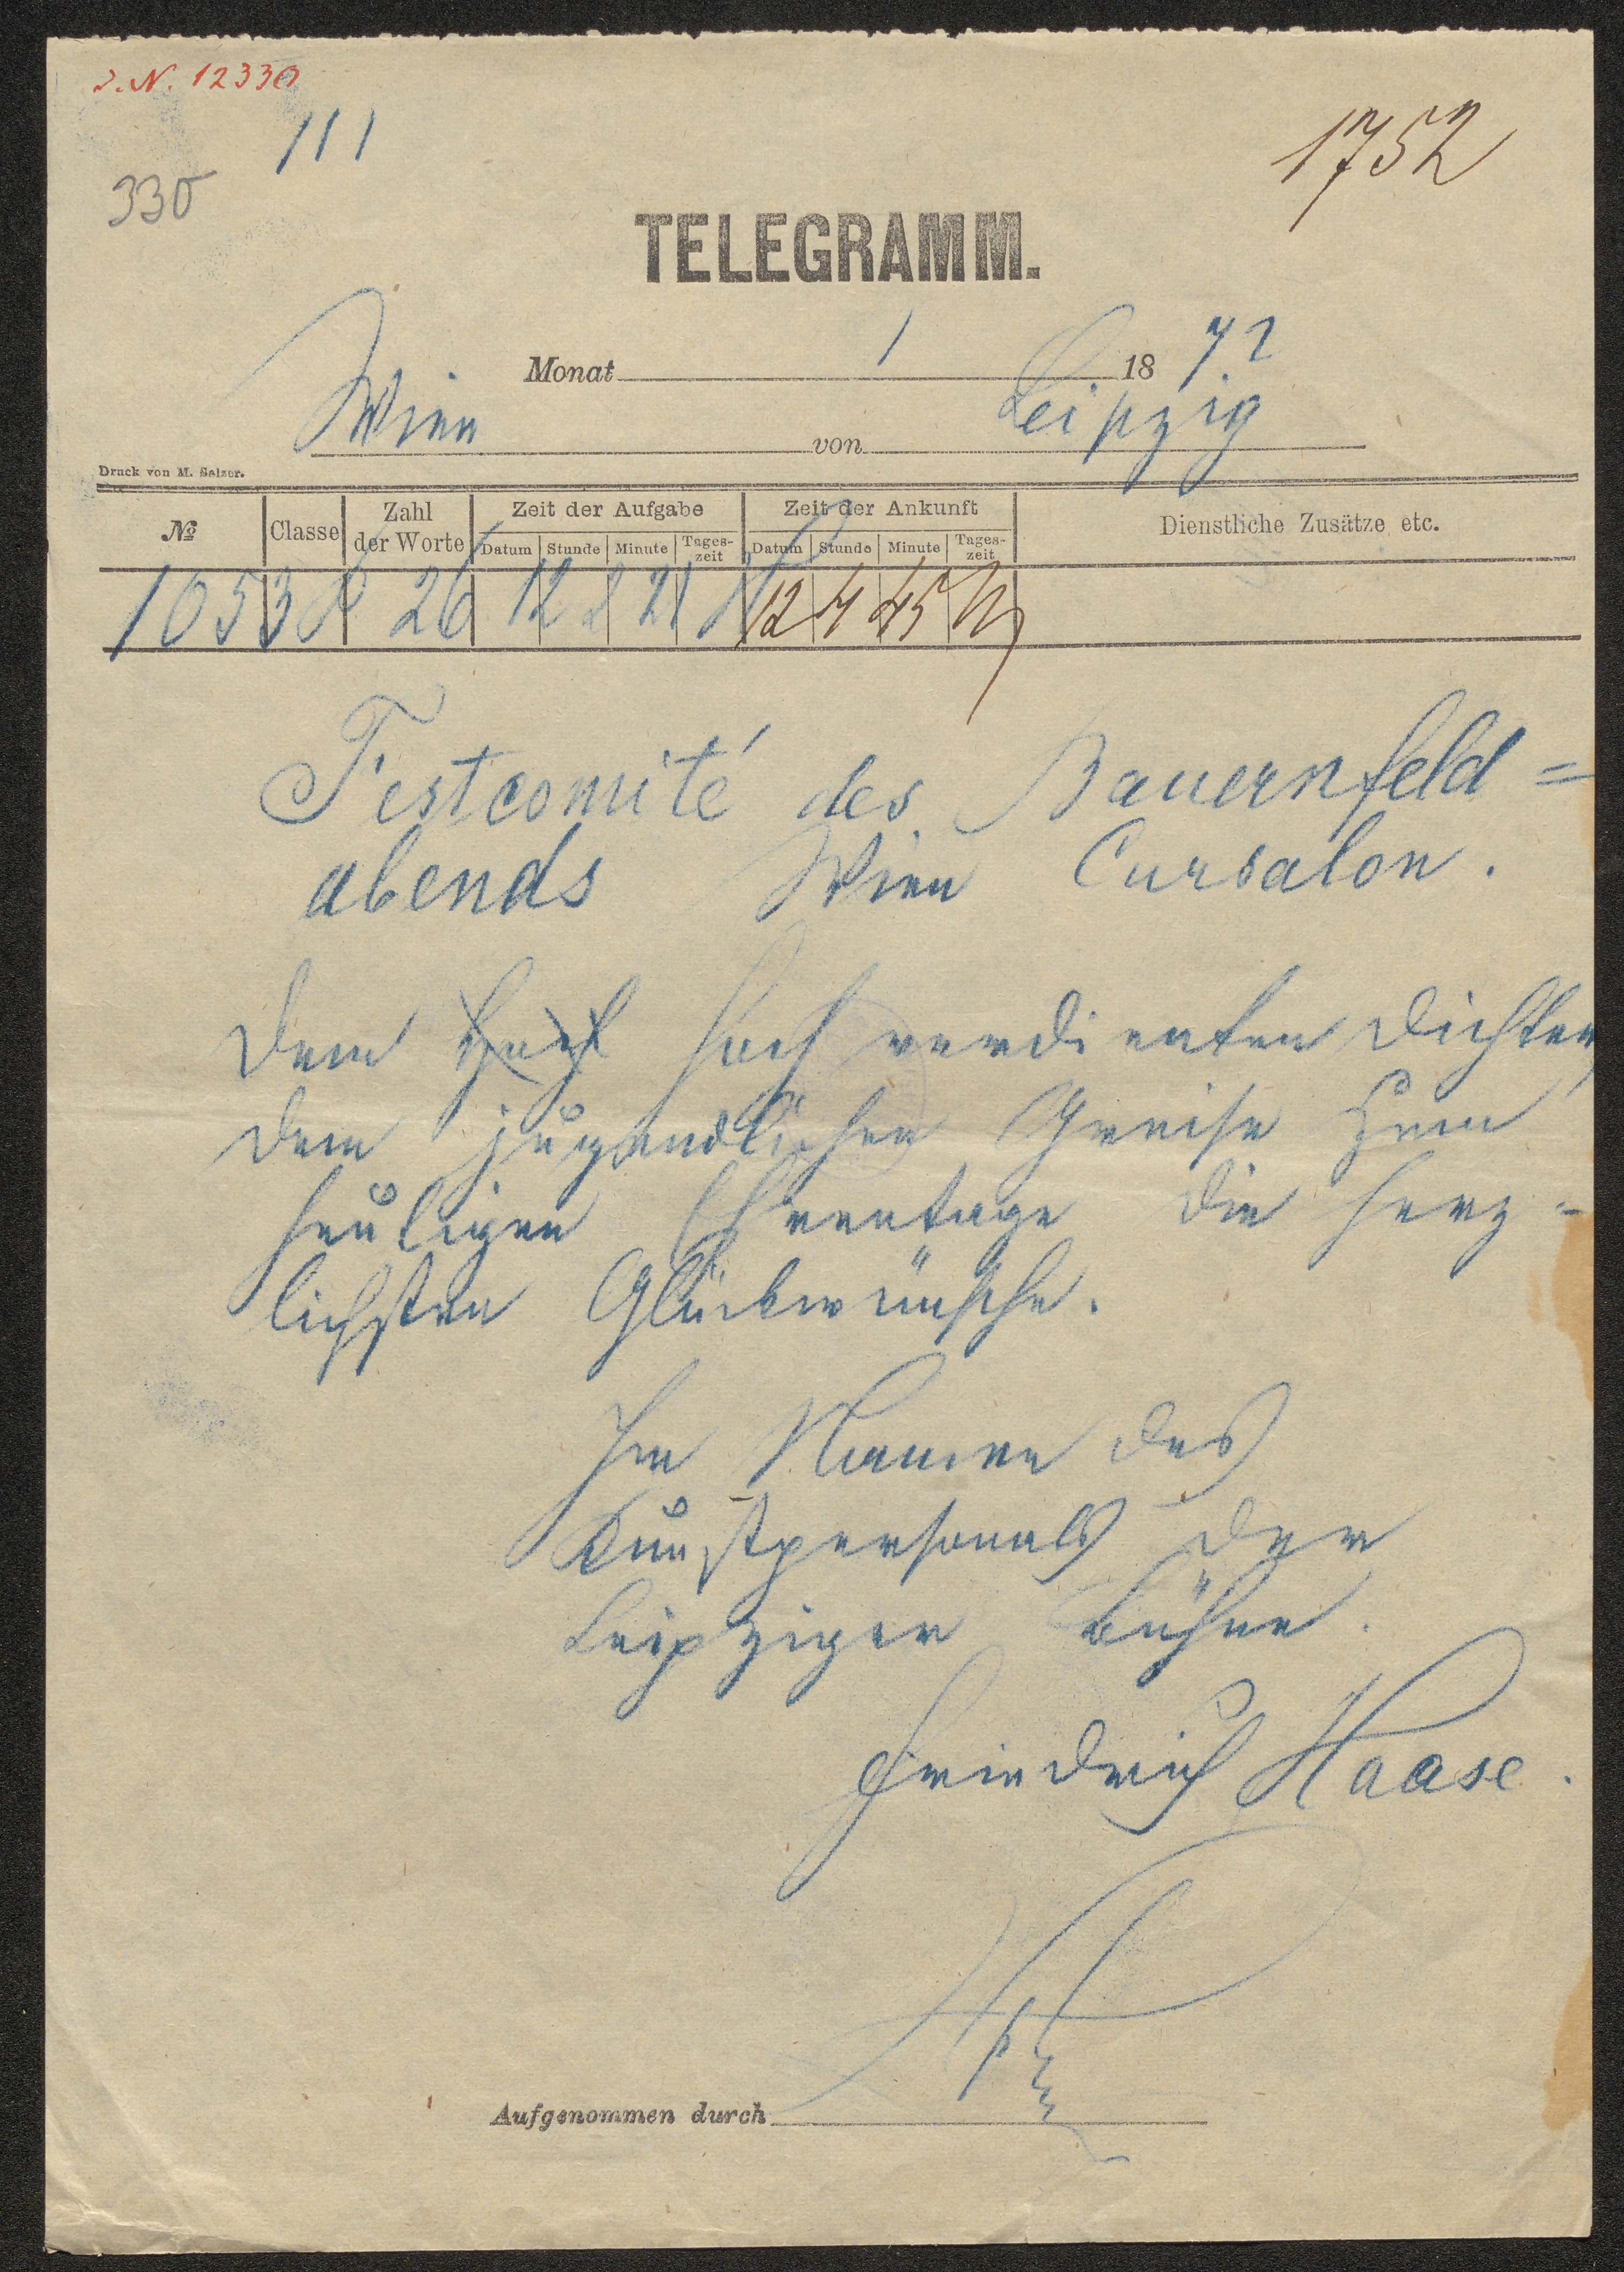 J. N. 12330
111
1752
330
TELEGRAMM.
Monat 1 1872
Wien von Leipzig
Druck von M. Salzer.
№ Classe Zahl der Worte Zeit der Aufgabe Zeit der Ankunft Dienstliche Zusätze etc.
Datum Stunde Minute Tages-zeit Datum Stunde Minute Tages-zeit
1053 26 12 2 21 12 4 45
Festcomité des Bauernfeld=
abends Wien Cursalon.
Dem hoch hoch verdienten Dichter,
dem jugendlichen Greise zum
heutigen Ehrentage die herz-
lichsten Glückwünsche.
Im Namen des
Kunstpersonals der
Leipziger Bühne.
Friedrich Haase.
Aufgenommen durch